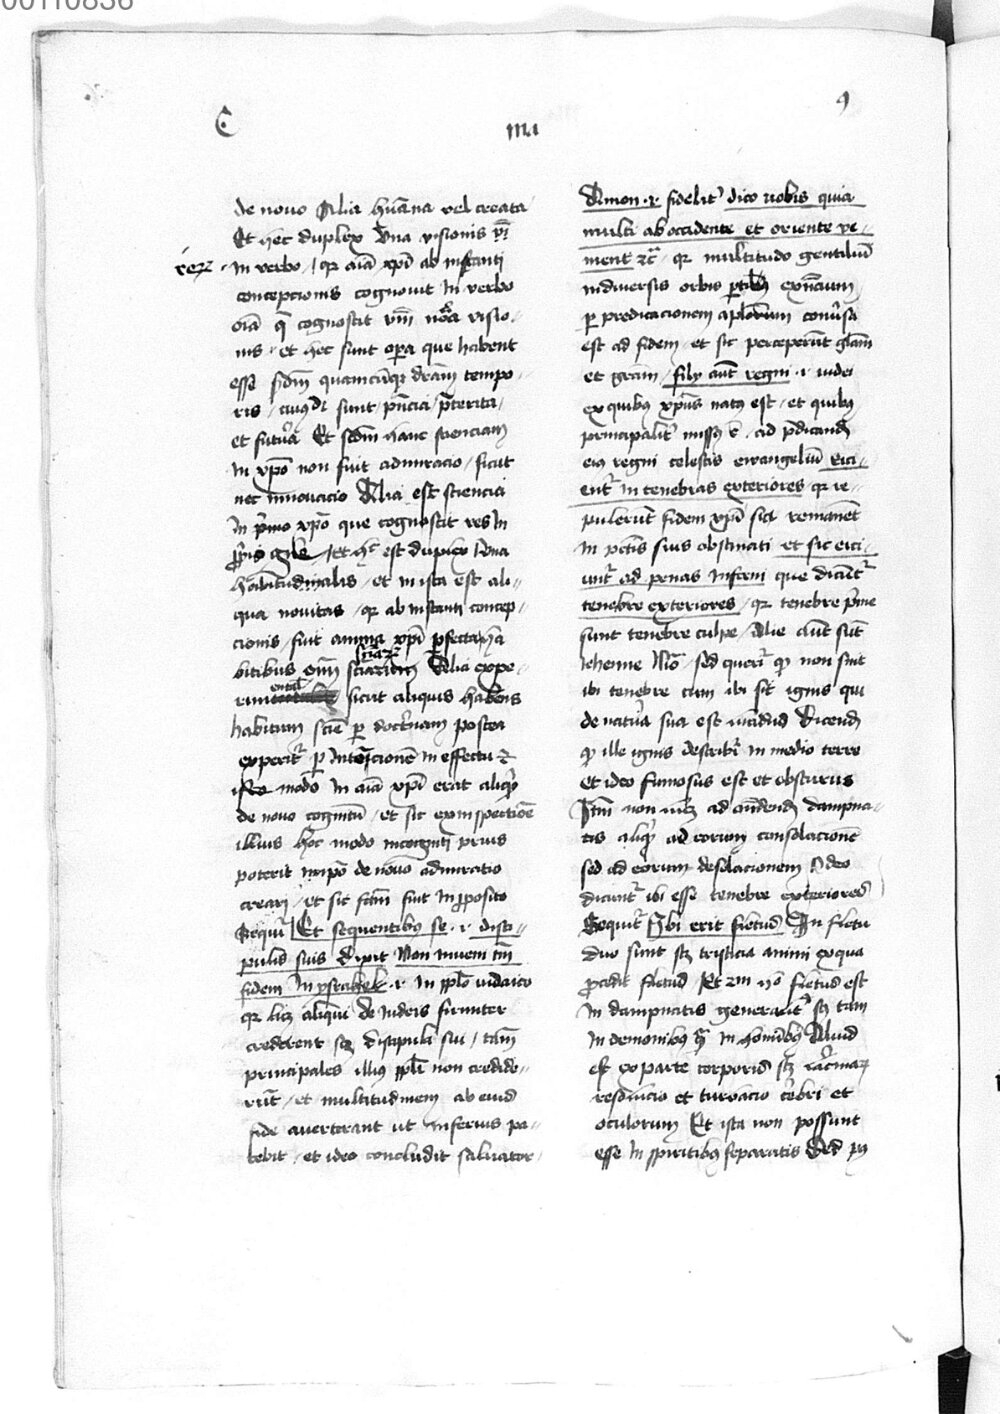 00110836
C
mɑ
9
de nouo Alia hūana vel creata
Et hec duplex Vna visionis
rerū
in verbo / qr aīa xp̄i ab instanti
concepcionis cognouit in verbo
oīa q̄ cognoscit visio-
nis / et hec sunt opera que habent
esse scd̄m quamcūqꝫ dr̄am tempo-
ris / cuiꝰdī sunt pn̄cia / p̄terita /
et futūra Et scd̄m hanc scienciam
in xp̄o non fuit admiracio / sicut
nec innouacio Alia est sciencia
in xp̄o que cognoscit res in
/ et hͨ est duplex Vna
habitudinalis / et in ista est ali-
qua nouitas / qr ab instanti concep-
cionis / fuit anima xp̄i p̄fecta hā
bitibus om̄ sciarꝫ Alia expe-
rim entał sicut aliquis habens
habitum scīe per doctrinam postea
experitͬ per intencionē in effectu
isto modo in aīa xp̄i erat aliqͥd
de nouo cognitū / et sic ex inspectiōe
illius hoc modo incogniti prius
poterit in xp̄o de nouo admiratio
creari / et sic sunt in proposito
Sequitͬ Et sequentibꝰ se .i. disci-
pulis suis dixit Non inueni tm̄
fidem in ysrahel .i. in pplo iudaico
qr licꝫ aliqui de iudeis firmiter
crederent scꝫ discipuli sui / tam̄
principales illius ppli non credide-
rūt / et multitudinem ab eius
fide auerterant ut inferius pa-
tebit / et ideo concludit saluator
Amen .i. fidelitͬ dico vobis quia
multi ab occidente et oriente ve-
nient ꝛc̄ / qr multitudo gentiliū
in diuersis orbis ptibꝰ exn̄cium
per predicacionem aplorum conūsa
est ad fidem / et sic perceperūt glām
et grām / filij aūt regni .i. iudei
ex quibꝰ xpūs natꝰ est / et quibꝰ
principalitͬ missꝰ ē / ad p̄dicandū
eis regni celestis ewangeliū eici-
entͬ in tenebras exteriores qr re-
pulerūt fidem xp̄i sicꝫ remanēt
in pctīs suis obstinati et sic eici-
untͬ ad penas inferni que dicūtͬ
tenebre exteriores / qr tenebre p̄me
sunt tenebre culpe / Alie aūt sūt
iehenne Mō / sed queritͬ qͦ non sint
ibi tenebre cum ibi sit ignis qui
de natūra sua est lucidus Dicendū
qͦ ille ignis describitͬ in medio terre
et ideo fumosus est et obscurus
Itm̄ non lucꝫ ad dampna-
tis aliqͥd ad eorum consolacionē
sed ad eorum desolacionem Ideo
dicuntͬ ibi esse tenebre exteriores
Sequitͬ Ibi erit fletus In fletu
duo sunt scꝫ tristicia animi ex qua
p̄cedit fletus Et fletus est
in dampnatis generalitͬ scꝫ tam
in demonibꝰ qͣm in hominibꝰ Aliud
est ex parte corporis scꝫ lacrimarꝫ
resolucio et turbacio cerebri et
oculorum Et ista non possunt
esse in spiritibꝰ separatis Sed